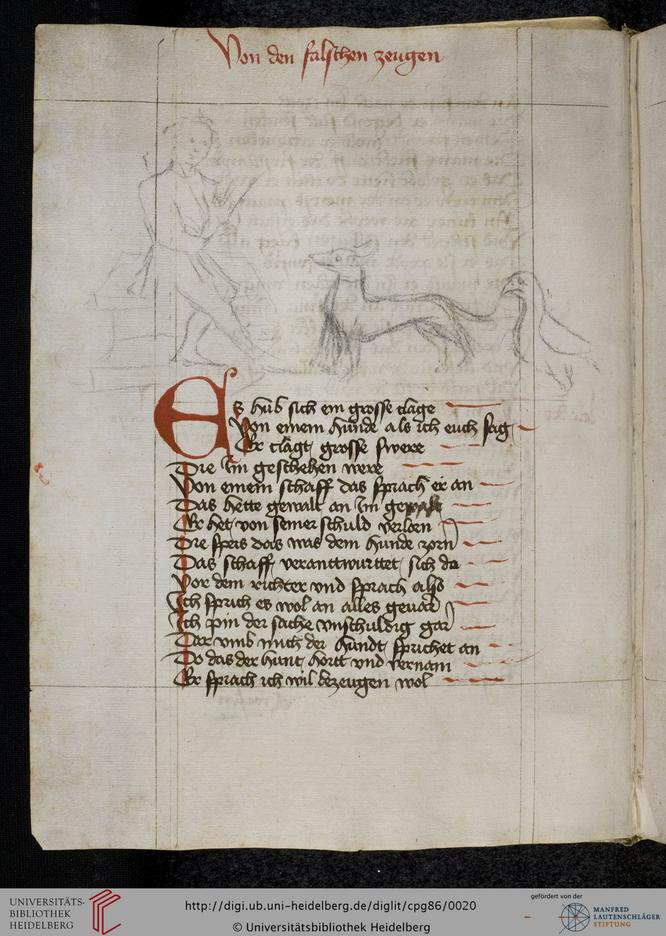 Von den falschen zeugen
Es hub sich ein grosse clage
Von einem hunde als ich euch sag
Er clagt grosse swere
Die Im geschehen were
Von einem schaff das sprach er an
Das hette gewalt an Im getan
Er het von seiner schuld verlorn
Die speis das was dem hunde zorn
Das schaff veranttwurttet sich do
Vor dem richter vnd sprach also
Ich sprich es wol an alles geuar
Ich pin der sache vnschuldig gar
Dar vmb mich der hundt sprichet an
Do das der hunt hortt vnd vernam
Er sprach ich wil bezeugen wol
UNIVERSITÄTS-
BIBLIOTHEK
HEIDELBERG
http://digi.ub.uni-heidelberg.de/diglit/cpg86/0020
© Universitätsbibliothek Heidelberg
gefördert von der
MANFRED
LAUTENSCHLÄGER
STIFTUNG